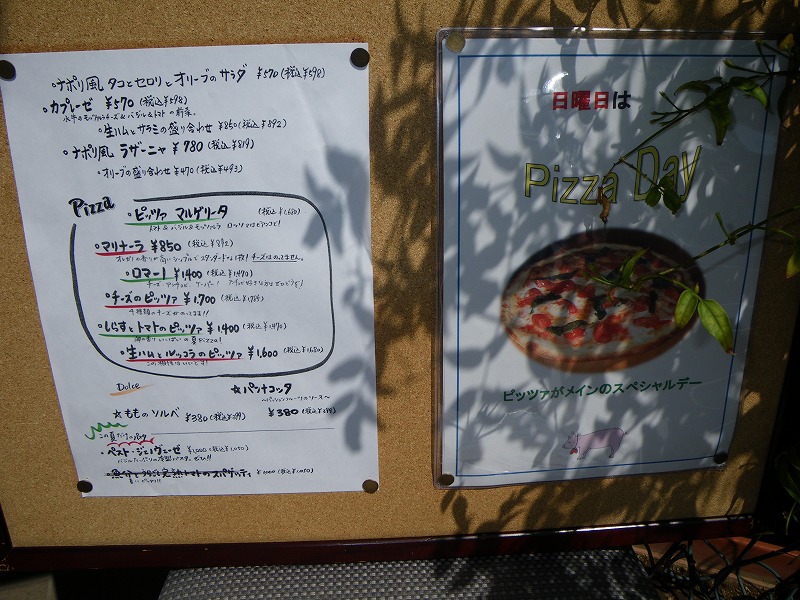 ・ナポリ風 タコとセロリとオリーブのサラダ ¥570(税込¥598)
・カプレーゼ ¥570(税込¥598)
水牛のモッツァレラチーズ&バジル&トマトの前菜。
・生ハムとサラミの盛り合わせ ¥850(税込¥892)
・ナポリ風 ラザーニャ ¥780(税込¥819)
・オリーブの盛り合わせ ¥470(税込¥493)
Pizza
・ピッツァ マルゲリータ (税込¥1,680)
トマト&バジル&モッツァレラ
・マリナーラ ¥850(税込¥892)
チーズはのってません。
・ロマーノ ¥1,400(税込¥1,470)
・チーズのピッツァ ¥1,700(税込¥1,785)
4種類のチーズがのってます!!
・しらすとトマトのピッツァ ¥1,400(税込¥1,470)
・生ハムとルッコラのピッツァ ¥1,600(税込¥1,680)
Dolce
☆パンナコッタ
〜パッションフルーツのソース〜
¥380
☆もものソルベ ¥380(税込¥399)
この夏だけの
・ペスト・ジェノヴェーゼ ¥1,000(税込¥1,050)
トマトのスパゲッティ ¥1,000(税込¥1,050)
日曜日は
Pizza Day
ピッツァがメインのスペシャルデー